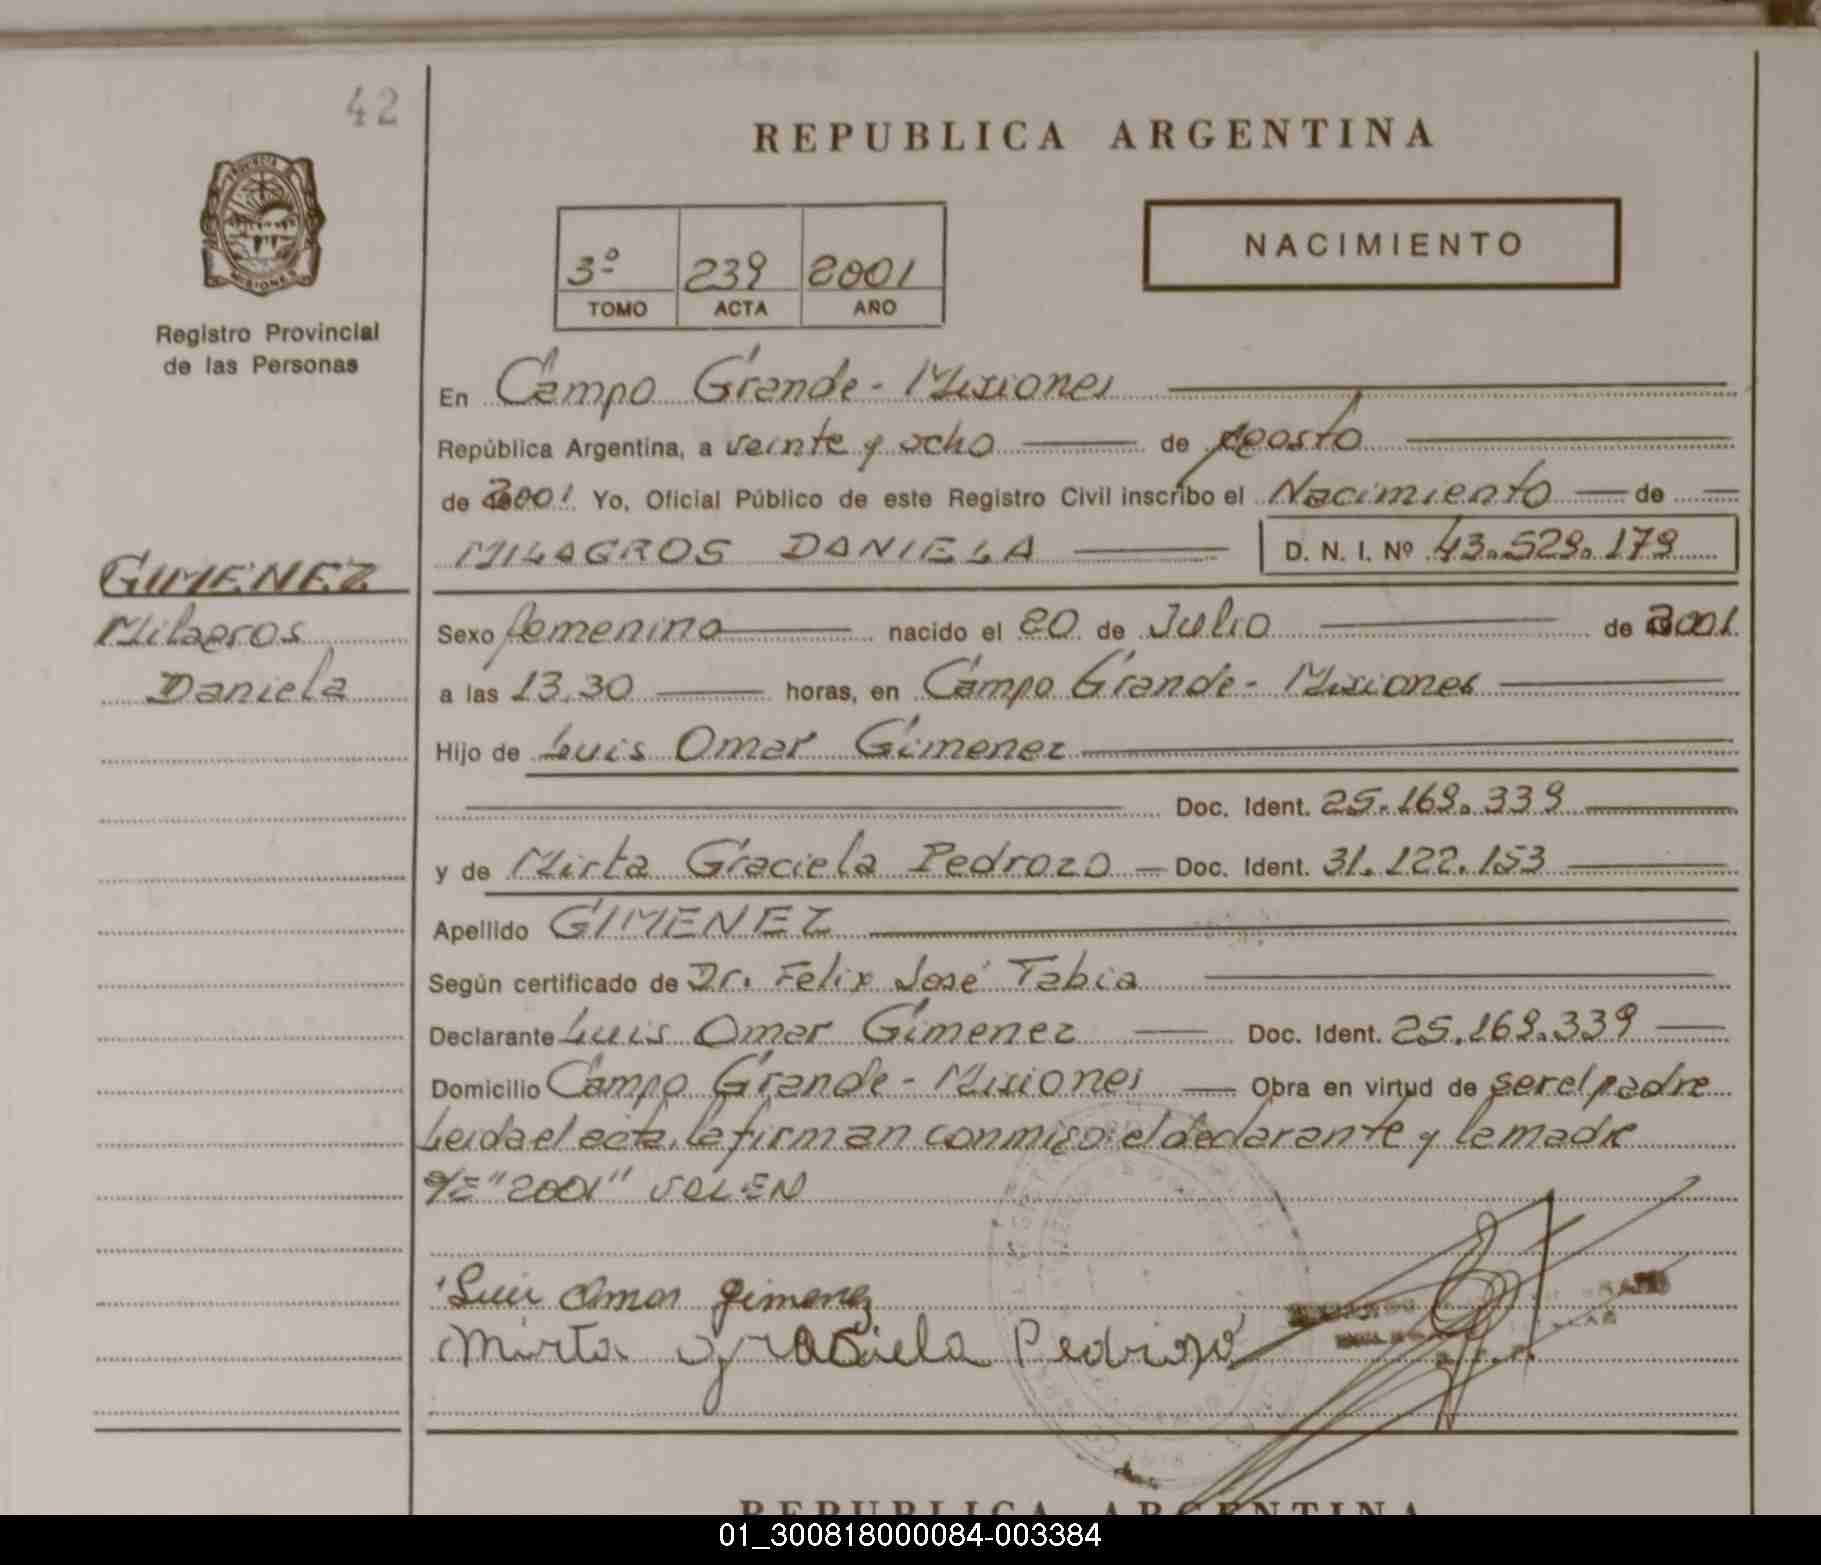 42
REPUBLICA ARGENTINA
Registro Provincial
de las Personas
3º 239 2001
TOMO ACTA AÑO
NACIMIENTO
En Campo Grande - Misiones
República Argentina, a veinte y ocho de Agosto
de 2001. Yo, Oficial Público de este Registro Civil inscribo el Nacimiento de
MILAGROS DANIELA D. N. I. Nº 43.529.179
GIMENEZ
Milagros
Daniela
Sexo femenino nacido el 20 de Julio de 2001.
a las 13.30 horas, en Campo Grande - Misiones
Hijo de Luis Omar Gimenez
Doc. Ident. 25.169.339
y de Mirta Graciela Pedrozo Doc. Ident. 31.122.153
Apellido GIMENEZ
Según certificado de Dr. Felix José Tabia
Declarante Luis Omar Gimenez Doc. Ident. 25.169.339
Domicilio Campo Grande - Misiones Obra en virtud de ser el padre
Leida el acta, la firman conmigo el declarante y la madre
S/E "2001" VALEN
Luis Omar Gimenez
Mirta Graciela Pedrozo
REPUBLICA ARGENTINA
01_300818000084-003384